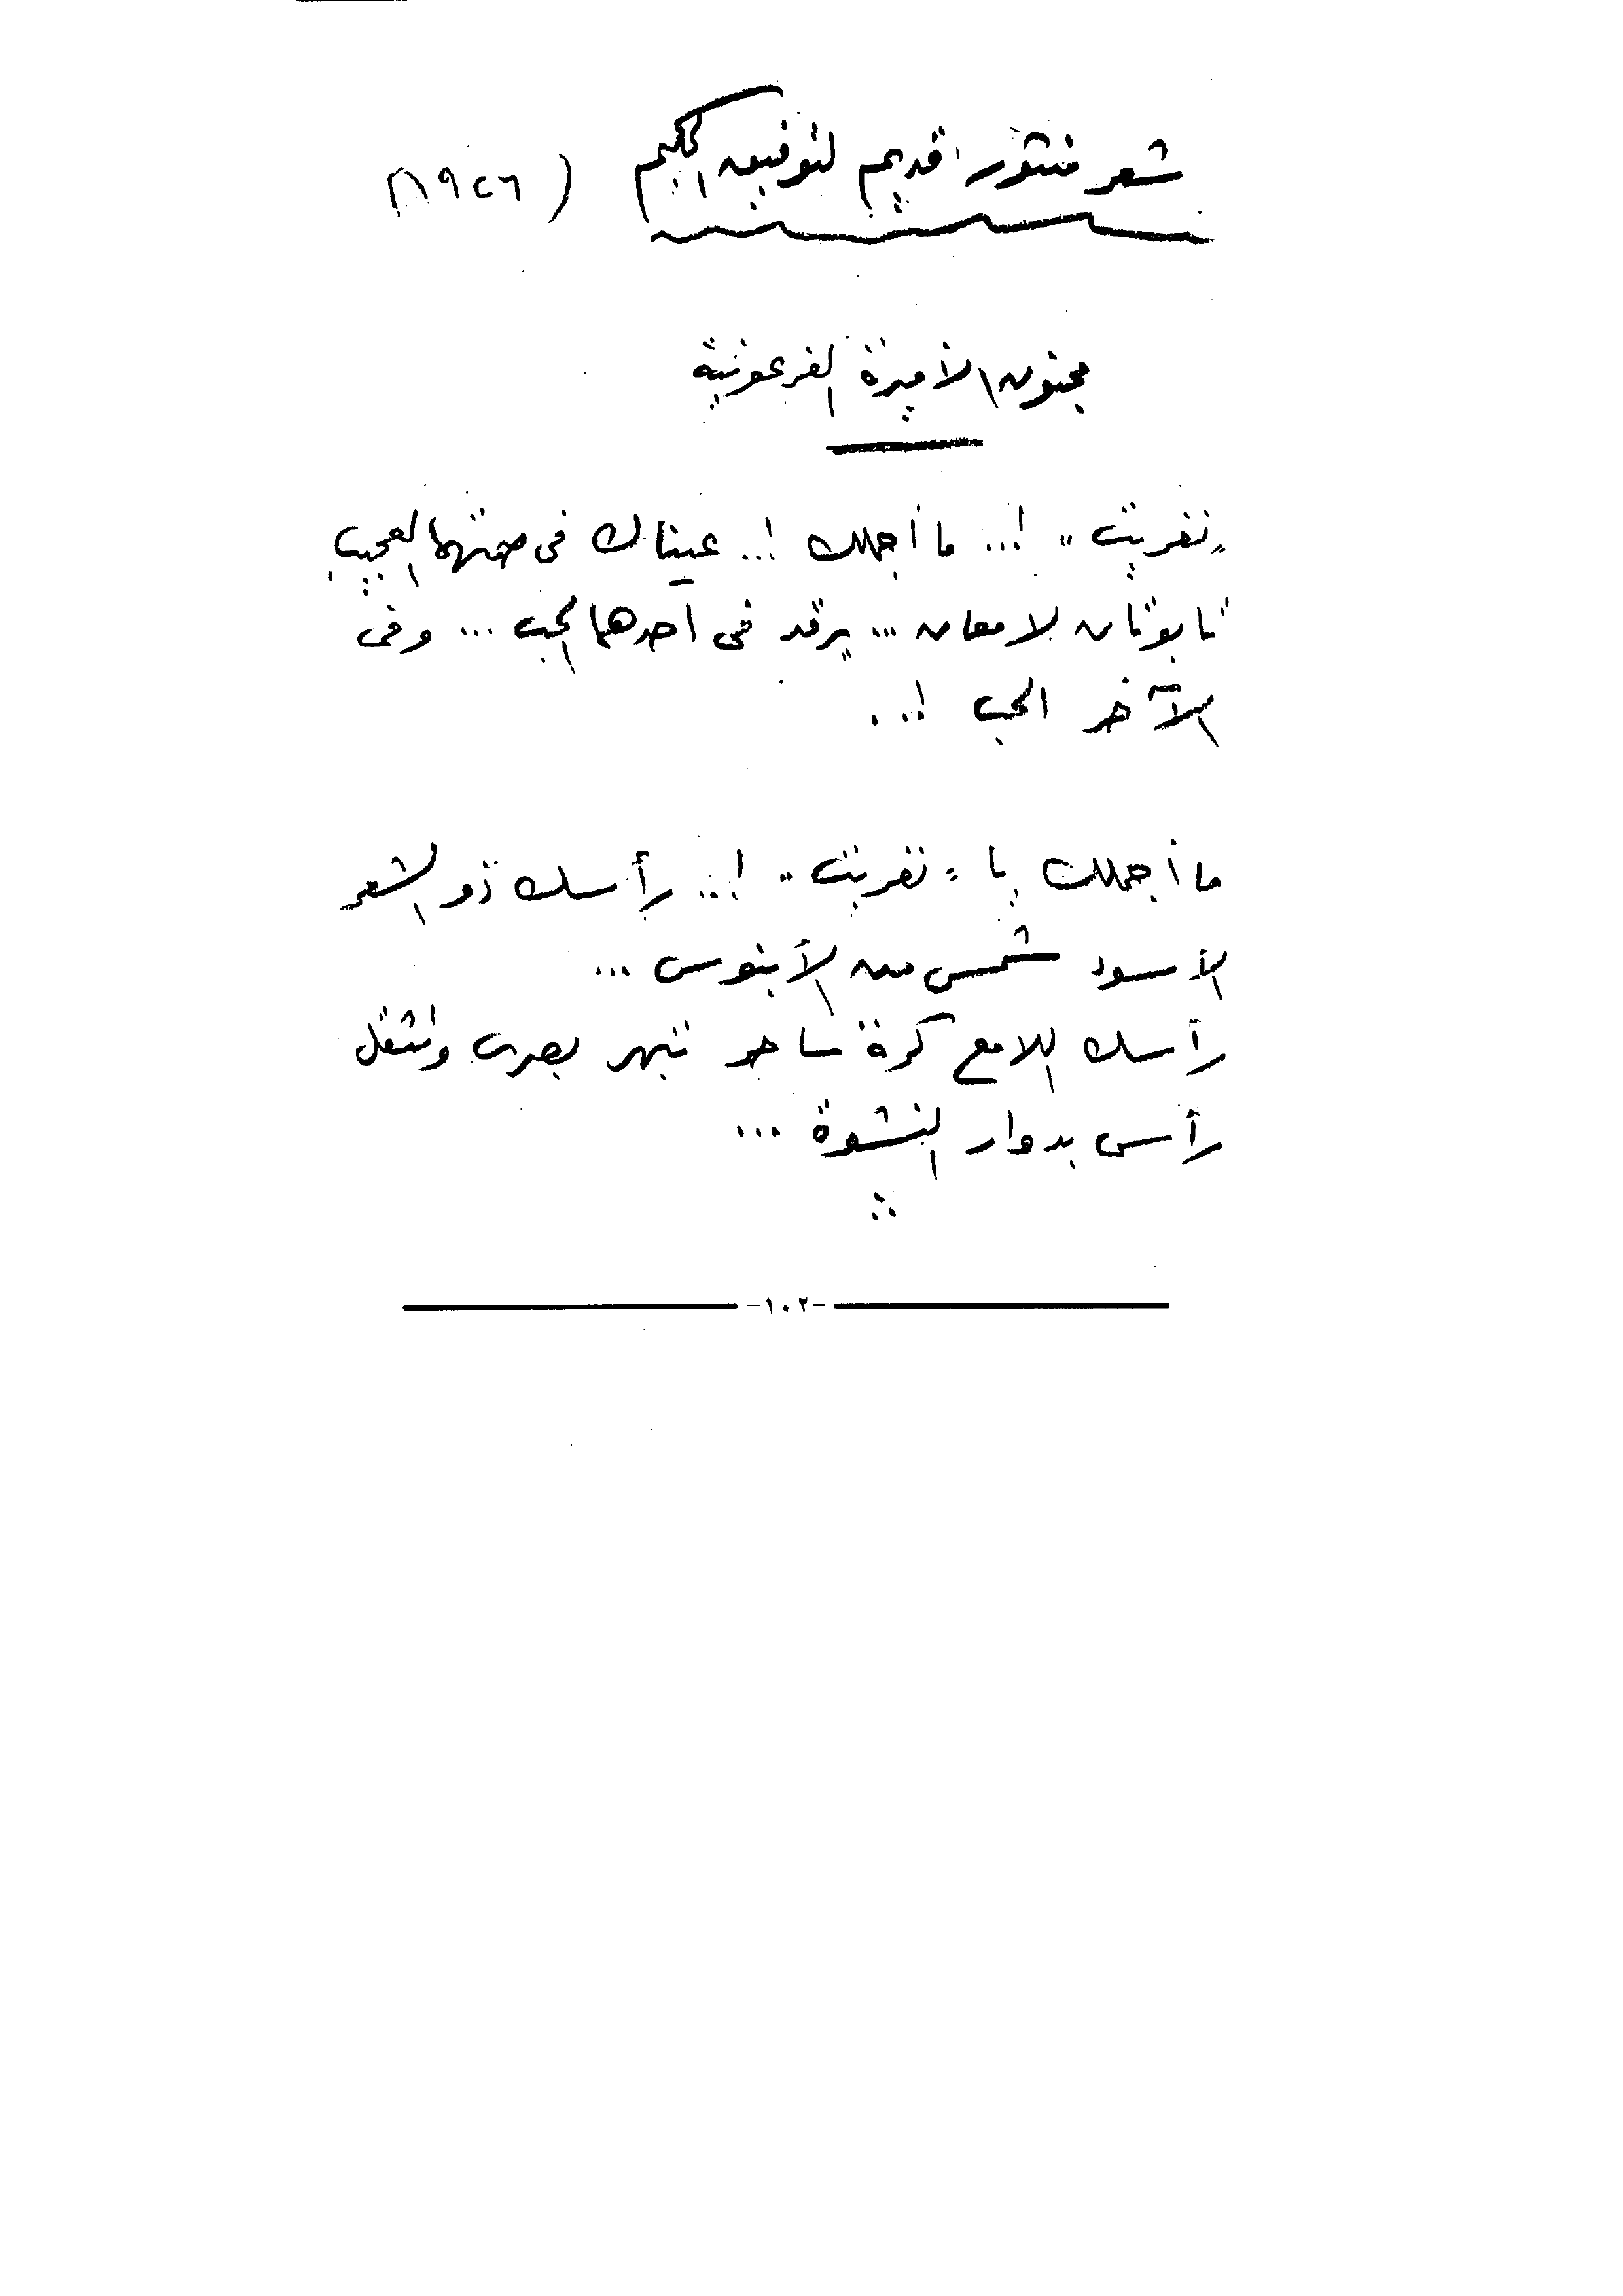 شعر منثور قديم لتوفيق الحكيم (١٩٢٦)
مجنون الأميرة الفرعونية
"نفريت" !... ما أجملك !... عيناك فى صمتهما العجيب
تابوتان لامعان ... يرقد فى أحدهما المحب ... وفى
الآخر الحب !...
ما أجملك يا "نفريت" !... رأسك ذو الشعر
الأسود شمس من الأبنوس ...
رأسك اللامع كرة ساحر تبهر بصرى وتثقل
رأسى بدوار النشوة ...
-١٠٢-